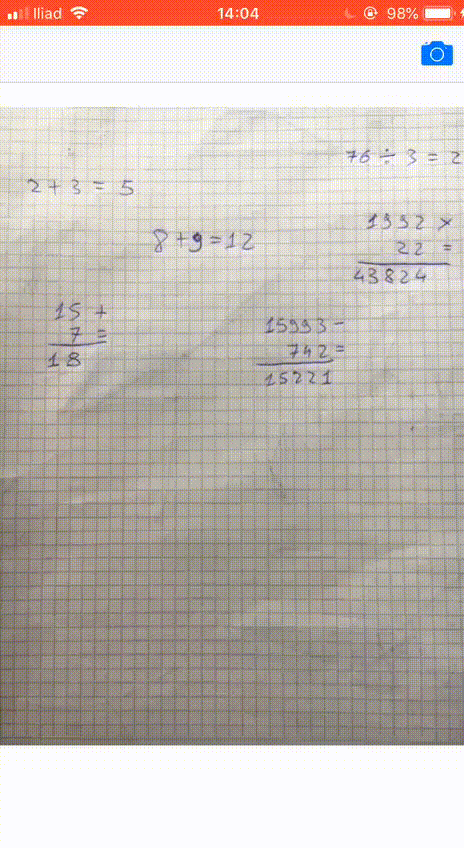 Iliad 14:04 98%
76 ÷ 3 = 2
2 + 3 = 5
1992 ×
22 =
43824
8 + 9 = 12
15 +
7 =
18
15993 -
742 =
15221